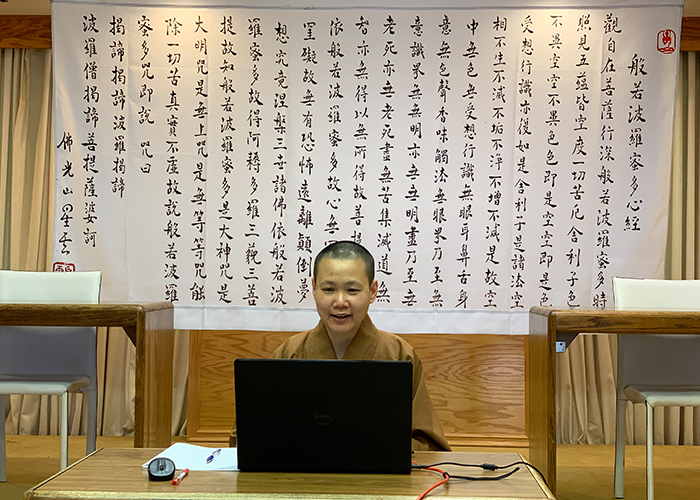 般若波羅蜜多心經
觀自在菩薩行深般若波羅蜜多時
照見五蘊皆空度一切苦厄舍利子色
不異空空不異色色即是空空即是色
受想行識亦復如是舍利子是諸法空
相不生不滅不垢不淨不增不減是故空
中無色無受想行識無眼耳鼻舌身
意無色聲香味觸法無眼界乃至無
意識界無無明亦無無明盡乃至無
老死亦無老死盡無苦集滅道無
智亦無得以無所得故菩提
依般若波羅蜜多故心無
罣礙故無有恐怖遠離顛倒夢
想究竟涅槃三世諸佛依般若波
羅蜜多故得阿耨多羅三藐三菩
提故知般若波羅蜜多是大神咒是
大明咒是無上咒是無等等咒能
除一切苦真實不虛故說般若波羅
蜜多咒即說咒曰
揭諦揭諦波羅揭諦
波羅僧揭諦菩提薩婆訶
佛光山星雲
DELL